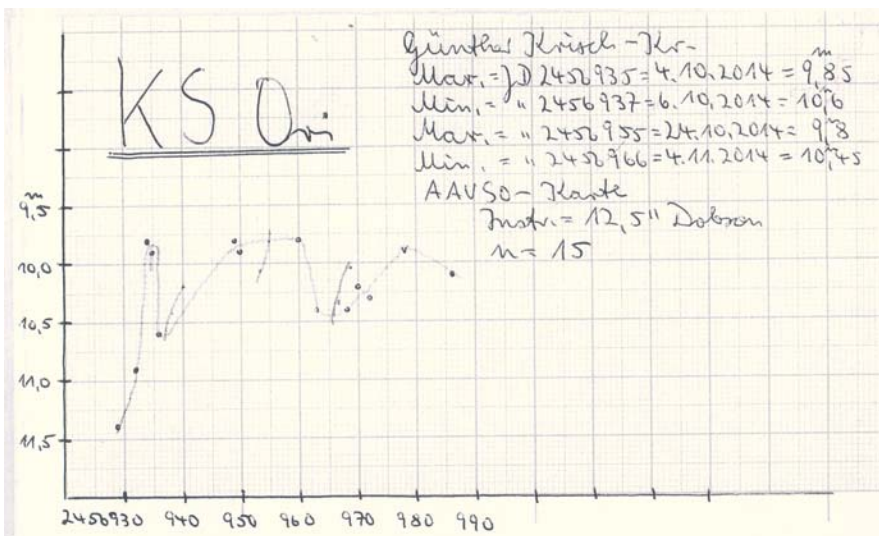 KS Ori
Günther Krisch - Kr -
Max. = JD 2456935 = 4.10.2014 = 9,85 m
Min. = " 2456937 = 6.10.2014 = 10,6 m
Max. = " 2456955 = 24.10.2014 = 9,8 m
Min. = " 2456966 = 4.11.2014 = 10,45 m
AAVSO - Karte
Instr. = 12,5" Dobson
n = 15
m
9,5
10,0
10,5
11,0
11,5
2456930 940 950 960 970 980 990